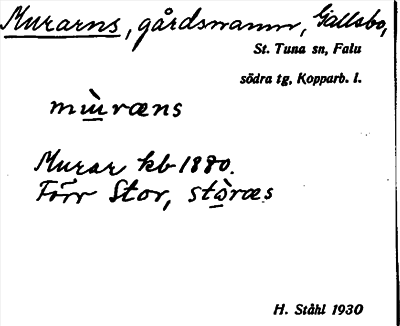 Murarns, gårdsnamn, Gallsbo,
St. Tuna sn, Falu
södra tg, Kopparb. l.
mù̲ræns
Murar kb 1880.
Förr Stor, stὼ̲ræs
H. Ståhl 1930